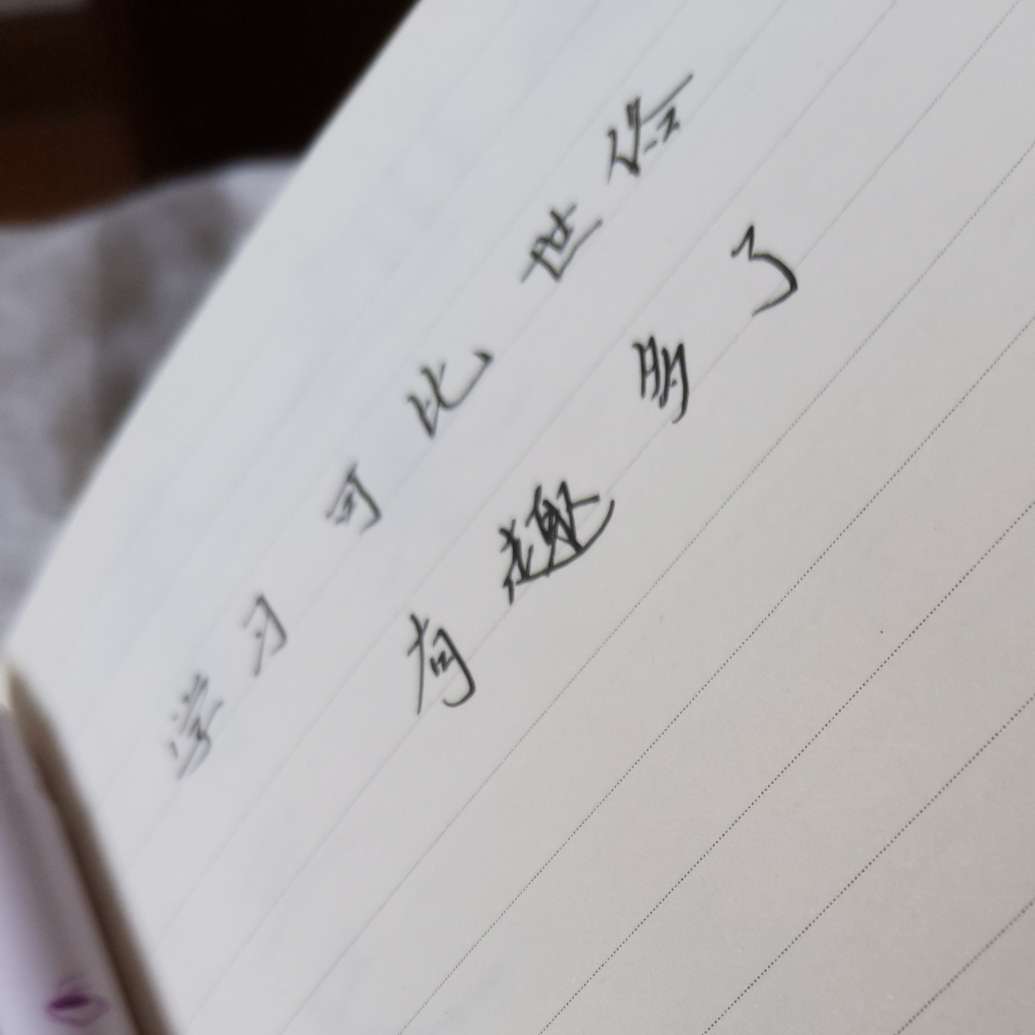 学习可比世俗
有趣多了